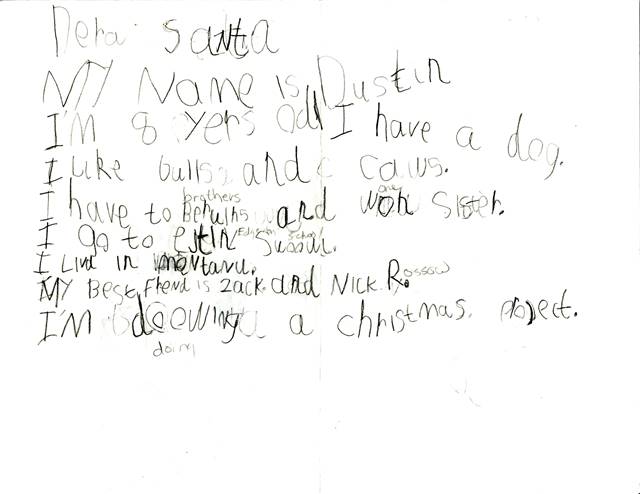 Dera Santa
MY Name is Dustin
I'M 8 yers odl I have a dog.
I Like bulls and caws.
brothers one
I have to and won Sister.
Edison School
I go to estin
I Live in montanu.
MY Best Fhend is Zack and Nick R. Rossow
I'M doowing a christmas. project.
doing